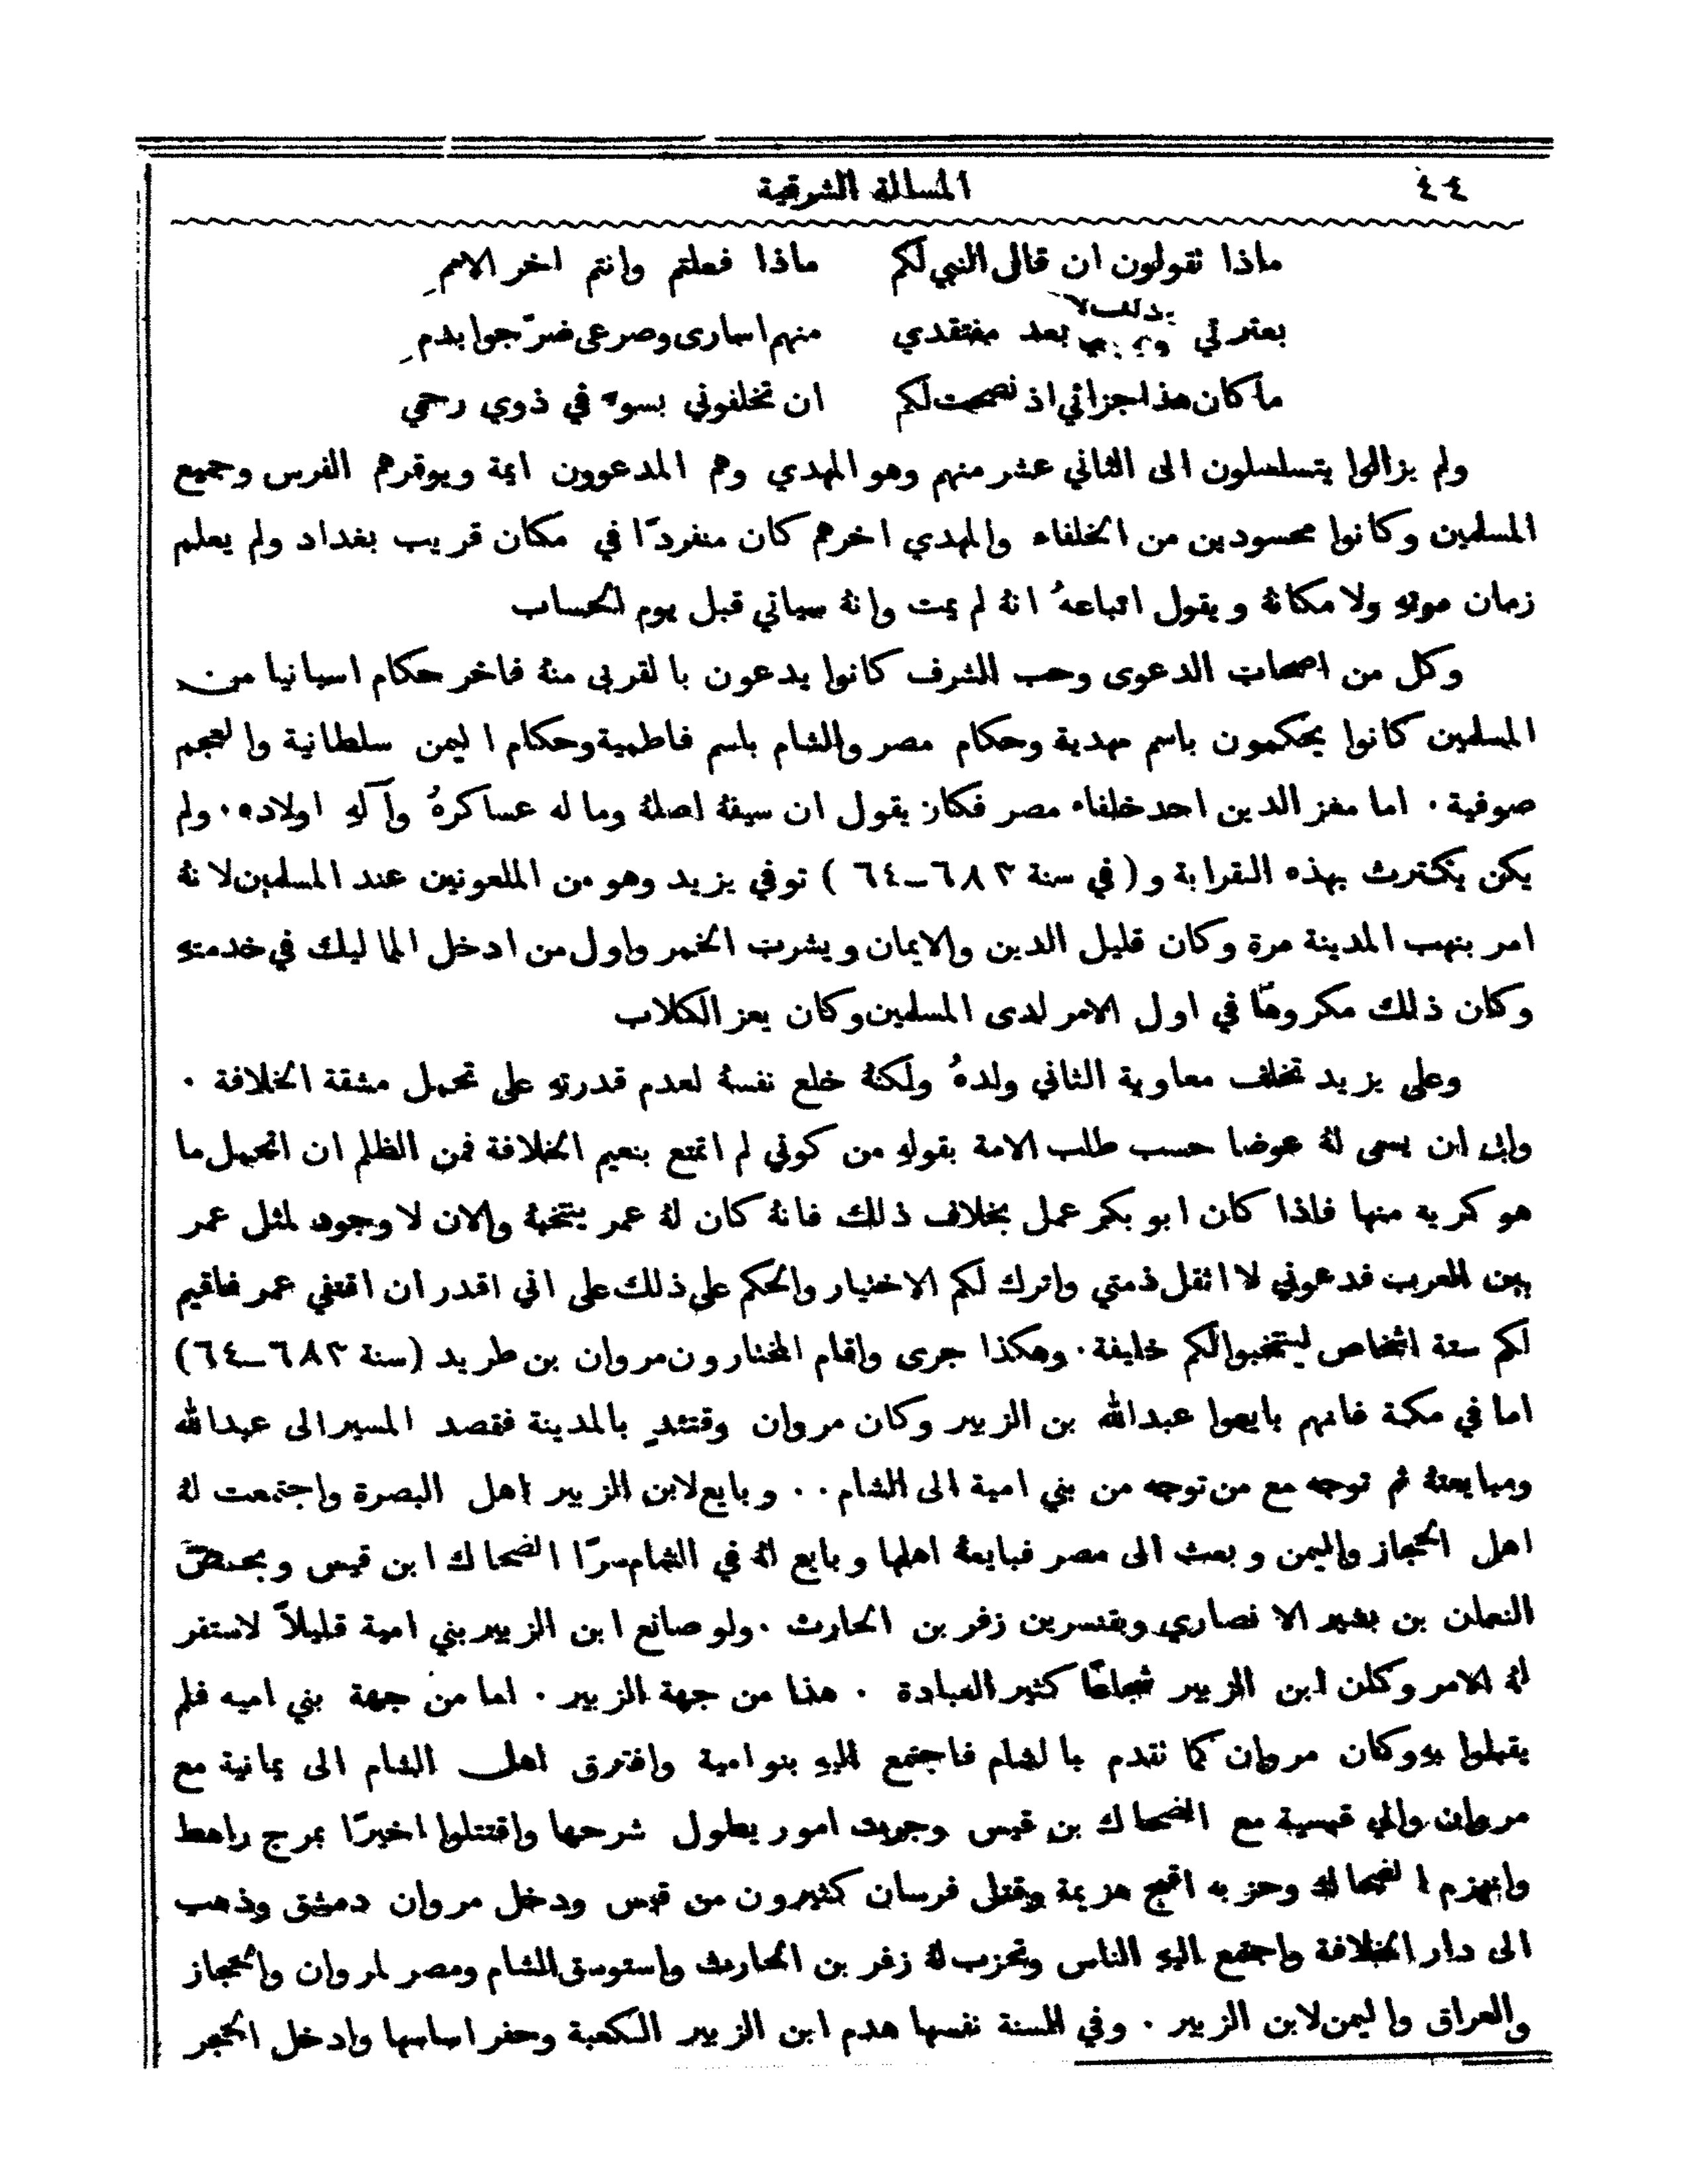 ٤٤
المسالة الشرقية
ماذا نقولون ان قال النبي لكم ماذا فعلتم وانتم اخر الامم
بعترتي بعد مفتقدي منهم اسارى وصرعى ضرّجوا بدم
ما كان هذا جزائي اذ نصحت لكم ان تخلفوني بسوء في ذوي رحمي
ولم يزالوا يتسلسلون الى الثاني عشر منهم وهو المهدي وهم المدعوون ايمة ويوقرهم الفرس وجميع
المسلمين وكانوا محسودين من الخلفاء والمهدي اخرهم كان منفردًا في مكان قريب بغداد ولم يعلم
زمان موته ولا مكانهُ ويقول اتباعهُ انهُ لم يمت وانهُ سياتي قبل يوم الحساب
وكل من اصحاب الدعوى وحب الشرف كانوا يدعون بالقربى منهُ فاخر حكام اسبانيا من
المسلمين كانوا يحكمون باسم مهدية وحكام مصر والشام باسم فاطمية وحكام اليمن سلطانية والعجم
صوفية . اما مغز الدين احد خلفاء مصر فكان يقول ان سيفهُ اصلهُ وما له عساكرهُ وآلهِ اولاده . ولم
يكن يكترث بهذه القرابة و (في سنة ٦٨٣–٦٤) توفي يزيد وهو من الملعونين عند المسلمين لانهُ
امر بنهب المدينة مرة وكان قليل الدين والايمان ويشرب الخمر واول من ادخل المماليك في خدمتهِ
وكان ذلك مكروهًا في اول الامر لدى المسلمين وكان يعز الكلاب
وعلى يزيد تخلف معاوية الثاني ولدهُ ولكنهُ خلع نفسهُ لعدم قدرتهِ على تحمل مشقة الخلافة .
وابى ان يسمى لهُ عوضا حسب طلب الامة بقولهِ من كوني لم اتمتع بنعيم الخلافة فمن الظلم ان اتحمل ما
هو كريه منها فاذا كان ابو بكر عمل بخلاف ذلك فانهُ كان لهُ عمر ينتخبهُ والان لا وجود لمثل عمر
بين العرب فدعوني لا اثقل ذمتي واترك لكم الاختيار والحكم على ذلك على اني اقدر ان اقتفي عمر فاقيم
لكم ستة اشخاص لينتخبوا لكم خليفة . وهكذا جرى واقام المختارون مروان بن طريد (سنة ٦٨٣–٦٤)
اما في مكة فانهم بايعوا عبدالله بن الزبير وكان مروان وقتئذٍ بالمدينة فقصد المسير الى عبدالله
ومبايعتهُ ثم توجه مع من توجه من بني امية الى الشام . . وبايع لابن الزبير اهل البصرة واجتمعت لهُ
اهل الحجاز واليمن وبعث الى مصر فبايعهُ اهلها وبايع لهُ في الشام سرًّا الضحاك ابن قيس وبحمص
النعمان بن بشير الانصاري وبقنسرين زفر بن الحارث . ولو صانع ابن الزبير بني امية قليلاً لاستقر
لهُ الامر وكان ابن الزبير شجاعًا كثير العبادة . هذا من جهة الزبير . اما من جهة بني اميه فلم
يقبلوا بهِ وكان مروان كما نقدم بالشام فاجتمع اليهِ بنو امية وافترق اهل الشام الى يمانية مع
مروان والى قيسية مع الضحاك بن قيس وجرت امور يطول شرحها واقتتلوا اخيرًا بمرج راهط
وانهزم الضحاك وحزبه اقبح هزيمة وقتل فرسان كثيرون من قيس ودخل مروان دمشق وذهب
الى دار الخلافة واجتمع اليهِ الناس وتحزب لهُ زفر بن الحارث واستوسق الشام ومصر لمروان والحجاز
والعراق واليمن لابن الزبير . وفي السنة نفسها هدم ابن الزبير الكعبة وحفر اساسها وادخل الحجر